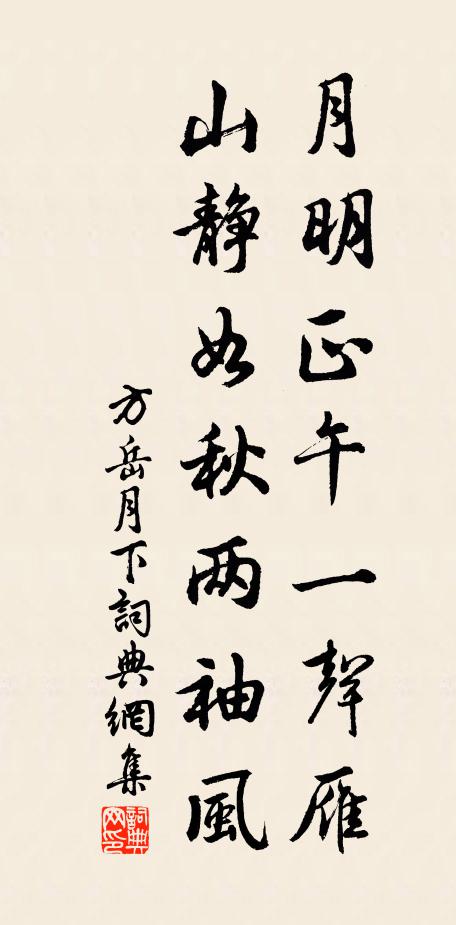 月明正午一聲雁
山靜如秋两袖風
方岳月下詞典網集
詞典網印